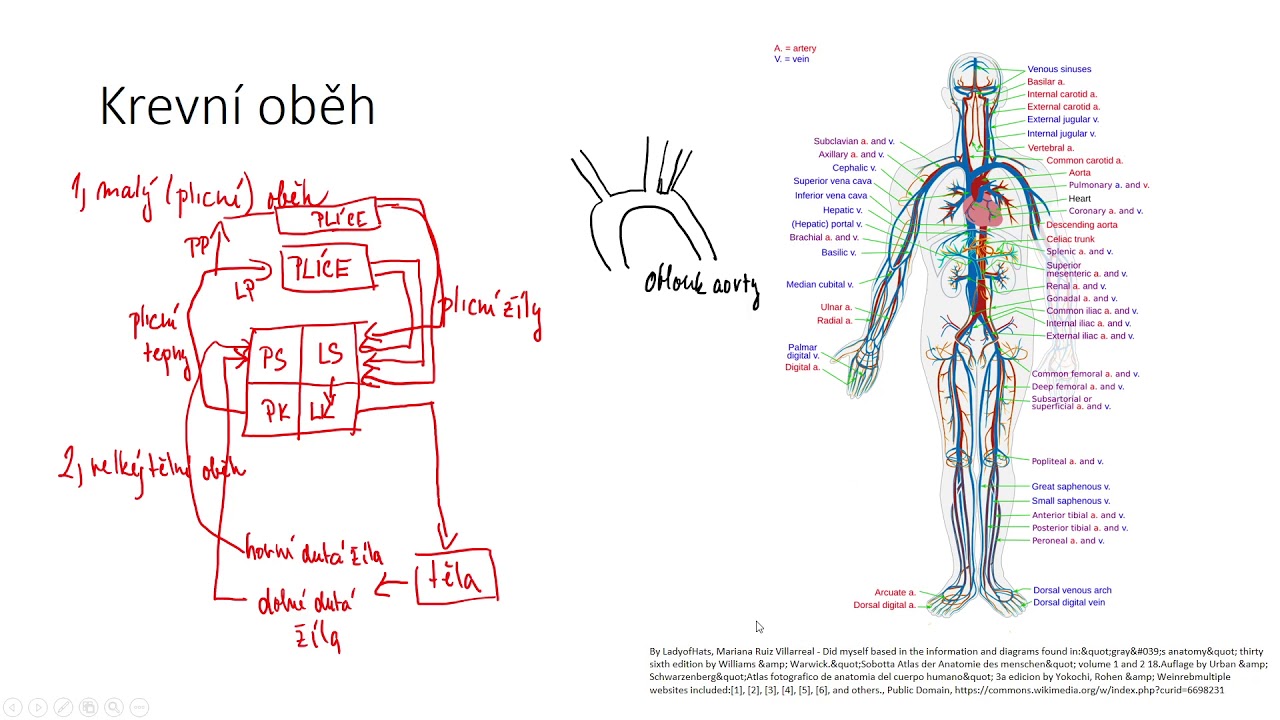 Krevní oběh
1, malý (plicní) oběh
PLÍCE
PP
PLÍCE
LP
plicní žíly
plicní
tepny
PS LS
PK LK
2, velký tělní oběh
horní dutá žíla
těla
dolní dutá
žíla
oblouk aorty
A. = artery
V. = vein
Subclavian a. and v.
Axillary a. and v.
Cephalic v.
Superior vena cava
Inferior vena cava
Hepatic v.
(Hepatic) portal v.
Brachial a. and v.
Basilic v.
Median cubital v.
Ulnar a.
Radial a.
Palmar
digital v.
Digital a.
Arcuate a.
Dorsal digital a.
Venous sinuses
Basilar a.
Internal carotid a.
External carotid a.
External jugular v.
Internal jugular v.
Vertebral a.
Common carotid a.
Aorta
Pulmonary a. and v.
Heart
Coronary a. and v.
Descending aorta
Celiac trunk
Splenic a. and v.
Superior
mesenteric a. and v.
Renal a. and v.
Gonadal a. and v.
Common iliac a. and v.
Internal iliac a. and v.
External iliac a. and v.
Common femoral a. and v.
Deep femoral a. and v.
Subsartorial or
superficial a. and v.
Popliteal a. and v.
Great saphenous v.
Small saphenous v.
Anterior tibial a. and v.
Posterior tibial a. and v.
Peroneal a. and v.
Dorsal venous arch
Dorsal digital vein
By LadyofHats, Mariana Ruiz Villarreal - Did myself based in the information and diagrams found in:&quot;gray&#039;s anatomy&quot; thirty
sixth edition by Williams &amp; Warwick.&quot;Sobotta Atlas der Anatomie des menschen&quot; volume 1 and 2 18.Auflage by Urban &amp;
Schwarzenberg&quot;Atlas fotografico de anatomia del cuerpo humano&quot; 3a edicion by Yokochi, Rohen &amp; Weinrebmultiple
websites included:[1], [2], [3], [4], [5], [6], and others., Public Domain, https://commons.wikimedia.org/w/index.php?curid=6698231